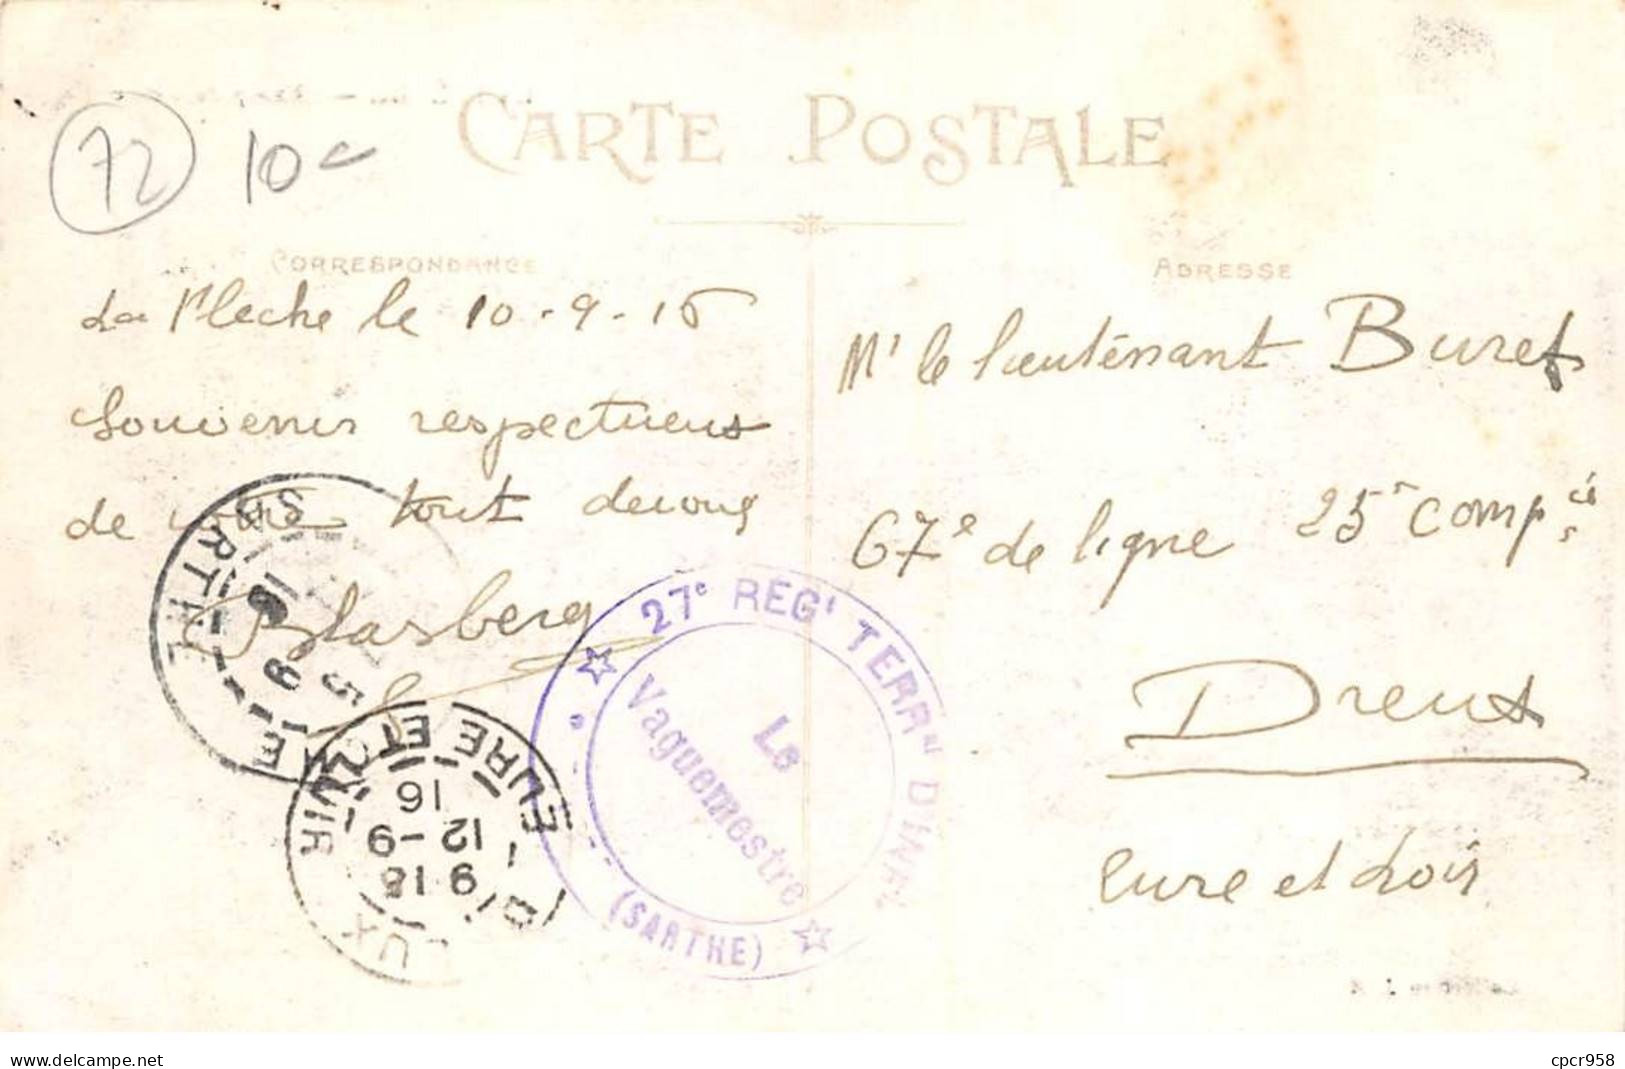 72 10
CARTE POSTALE
CORRESPONDANCE
ADRESSE
La Fleche le 10-9-16
Souvenir respectueux
de votre tout devoué
Blasberg
Mr le lieuténant Buret
67e de ligne 25e Compie
Dreux
Eure et Loir
SARTHE
16
9
5
DREUX
EURE ET LOIR
9 15
12-9
16
27e REGt TERRal D'INFie
Le
Vaguemestre
(SARTHE)
delcampe.net
cpcr958